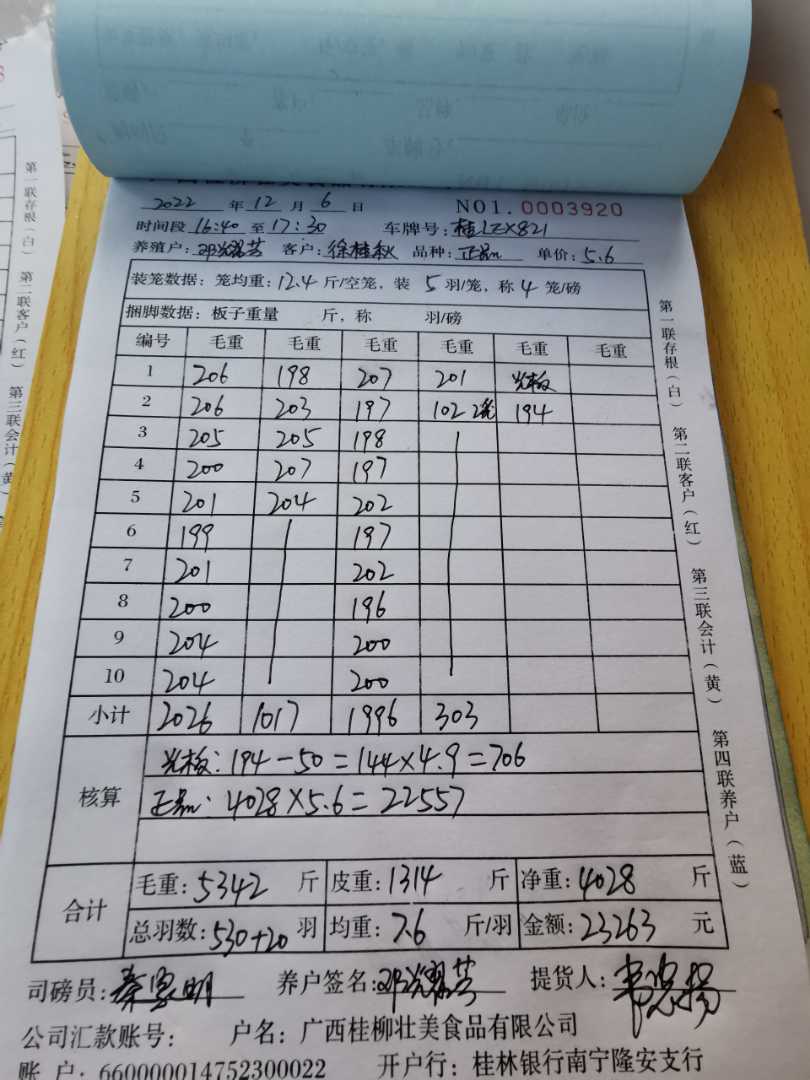 2022 年 12 月 6 日 NO1.0003920
时间段 16:40 至 17:30 车牌号: 桂LZX821
养殖户: 邓耀芳 客户: 徐桂秋 品种: 正品 单价: 5.6
装笼数据: 笼均重: 12.4 斤/空笼, 装 5 羽/笼, 称 4 笼/磅
捆脚数据: 板子重量 斤, 称 羽/磅
编号 毛重 毛重 毛重 毛重 毛重 毛重
1 206 198 207 201 光板
2 206 203 197 102 2笼 194
3 205 205 198
4 200 207 197
5 201 204 202
6 199 197
7 201 202
8 200 196
9 204 200
10 204 200
小计 2026 1017 1996 303
核算
光板: 194-50=144×4.9=706
正品: 4028×5.6=22557
合计
毛重: 5342 斤 皮重: 1314 斤 净重: 4028 斤
总羽数: 530+20 羽 均重: 7.6 斤/羽 金额: 23263 元
司磅员: 秦家明 养户签名: 邓耀芳 提货人:
公司汇款账号: 户名: 广西桂柳壮美食品有限公司
账 户: 660000014752300022 开户行: 桂林银行南宁隆安支行
第一联存根(白) 第二联客户(红) 第三联会计(黄) 第四联养户(蓝)
第一联存根(白) 第二联客户(红) 第三联会计(黄)